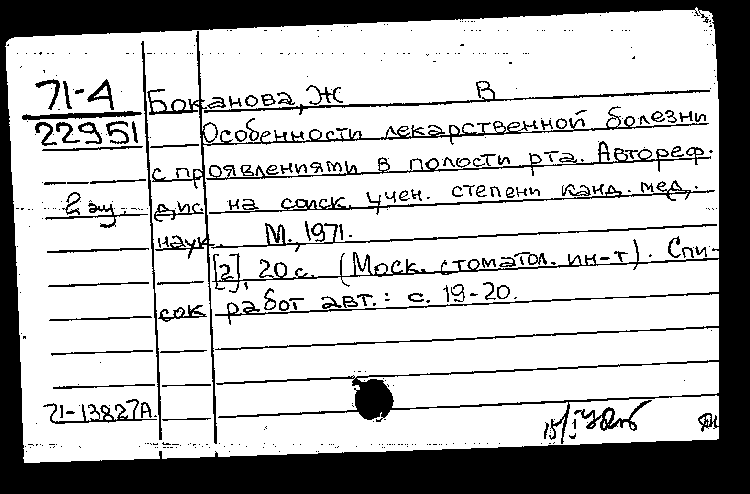 71-4
22951
Боканова, Ж В
Особенности лекарственной болезни
с проявлениями в полости рта. Автореф.
дис. на соиск. учен. степени канд. мед.
наук. М., 1971.
[2], 20 с. (Моск. стоматол. ин-т). Спи-
сок работ авт.: с. 19-20.
71-13827А